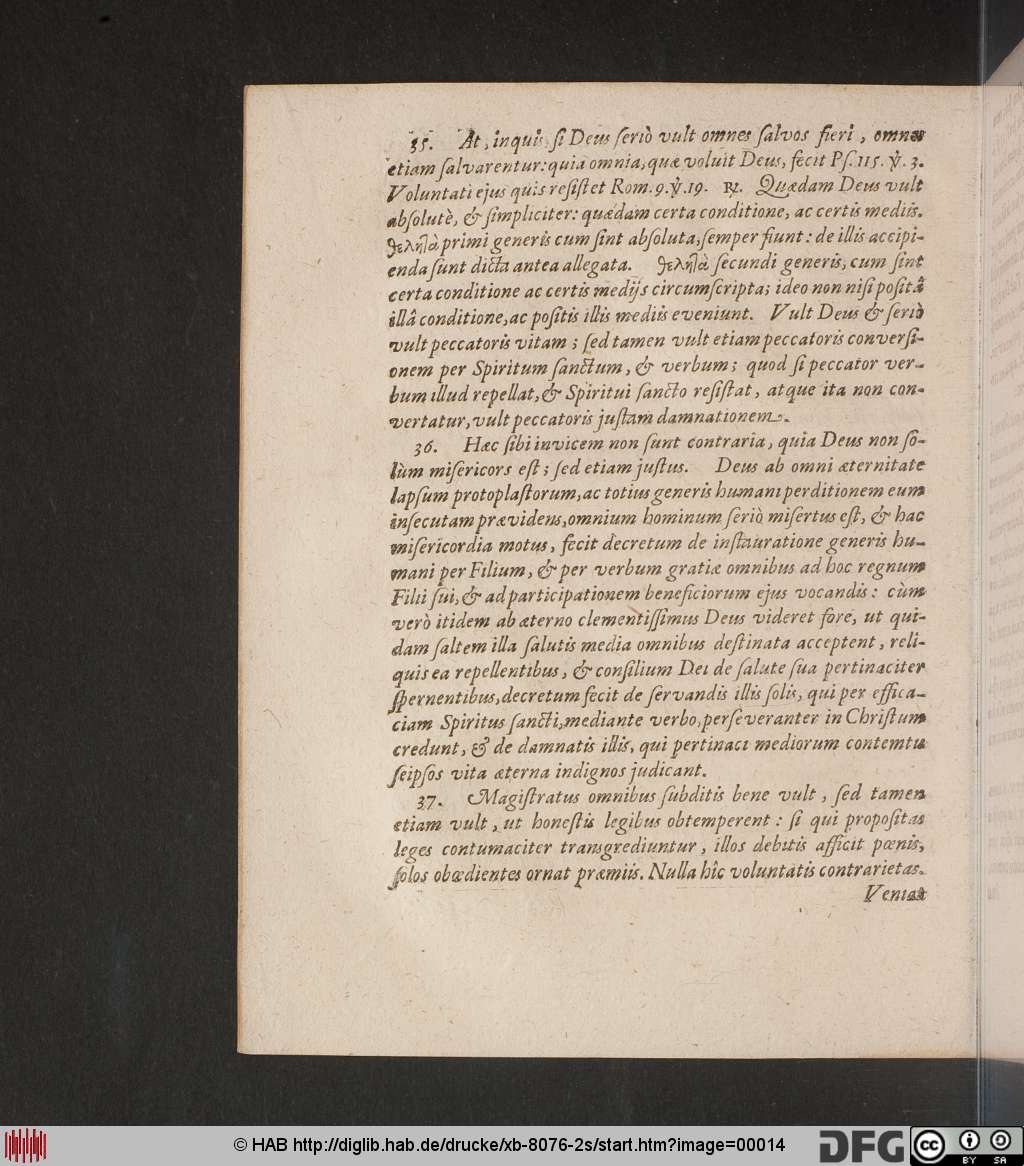 35. At, inquis, ſi Deus ſeriò vult omnes ſalvos fieri, omnes
etiam ſalvarentur: quia omnia, quæ voluit Deus, fecit Pſ. 115. ℣. 3.
Voluntati ejus quis reſiſtet Rom. 9. ℣. 19. ℞. Quædam Deus vult
abſolutè, & ſimpliciter: quædam certa conditione, ac certis mediis.
θελητὰ primi generis cum ſint abſoluta, ſemper fiunt: de illis accipi-
enda ſunt dicta antea allegata. θελητὰ ſecundi generis, cum ſint
certa conditione ac certis medijs circumſcripta; ideo non niſi poſitâ
illâ conditione, ac poſitis illis mediis eveniunt. Vult Deus & ſeriò
vult peccatoris vitam; ſed tamen vult etiam peccatoris converſi-
onem per Spiritum ſanctum, & verbum; quod ſi peccator ver-
bum illud repellat, & Spiritui ſancto reſiſtat, atque ita non con-
vertatur, vult peccatoris juſtam damnationem.
36. Hæc ſibi invicem non ſunt contraria, quia Deus non ſo-
lùm miſericors eſt; ſed etiam juſtus. Deus ab omni æternitate
lapſum protoplaſtorum, ac totius generis humani perditionem eum
inſecutam prævidens, omnium hominum ſeriò miſertus eſt, & hac
miſericordia motus, fecit decretum de inſtauratione generis hu-
mani per Filium, & per verbum gratiæ omnibus ad hoc regnum
Filii ſui, & ad participationem beneficiorum ejus vocandis: cùm
verò itidem ab æterno clementiſſimus Deus videret fore, ut qui-
dam ſaltem illa ſalutis media omnibus deſtinata acceptent, reli-
quis ea repellentibus, & conſilium Dei de ſalute ſua pertinaciter
ſpernentibus, decretum fecit de ſervandis illis ſolis, qui per effica-
ciam Spiritus ſancti, mediante verbo, perſeveranter in Chriſtum
credunt, & de damnatis illis, qui pertinaci mediorum contemtu
ſeipſos vita æterna indignos judicant.
37. Magiſtratus omnibus ſubditis bene vult, ſed tamen
etiam vult, ut honeſtis legibus obtemperent: ſi qui propoſitas
leges contumaciter transgrediuntur, illos debitis afficit pœnis,
ſolos obœdientes ornat præmiis. Nulla hîc voluntatis contrarietas.
Veniat
© HAB http://diglib.hab.de/drucke/xb-8076-2s/start.htm?image=00014
DFG
cc BY SA